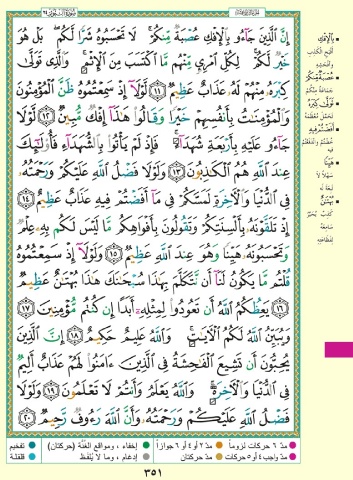 إِنَّ ٱلَّذِينَ جَآءُو بِٱلْإِفْكِ عُصْبَةٌ مِّنكُمْ ۚ لَا تَحْسَبُوهُ شَرًّا لَّكُم ۖ بَلْ هُوَ
خَيْرٌ لَّكُمْ ۚ لِكُلِّ ٱمْرِئٍ مِّنْهُم مَّا ٱكْتَسَبَ مِنَ ٱلْإِثْمِ ۚ وَٱلَّذِى تَوَلَّىٰ
كِبْرَهُۥ مِنْهُمْ لَهُۥ عَذَابٌ عَظِيمٌ ﴿١١﴾ لَّوْلَآ إِذْ سَمِعْتُمُوهُ ظَنَّ ٱلْمُؤْمِنُونَ
وَٱلْمُؤْمِنَٰتُ بِأَنفُسِهِمْ خَيْرًا وَقَالُوا۟ هَٰذَآ إِفْكٌ مُّبِينٌ ﴿١٢﴾ لَّوْلَا
جَآءُو عَلَيْهِ بِأَرْبَعَةِ شُهَدَآءَ ۚ فَإِذْ لَمْ يَأْتُوا۟ بِٱلشُّهَدَآءِ فَأُو۟لَٰٓئِكَ
عِندَ ٱللَّهِ هُمُ ٱلْكَٰذِبُونَ ﴿١٣﴾ وَلَوْلَا فَضْلُ ٱللَّهِ عَلَيْكُمْ وَرَحْمَتُهُۥ
فِى ٱلدُّنْيَا وَٱلْءَاخِرَةِ لَمَسَّكُمْ فِى مَآ أَفَضْتُمْ فِيهِ عَذَابٌ عَظِيمٌ ﴿١٤﴾
إِذْ تَلَقَّوْنَهُۥ بِأَلْسِنَتِكُمْ وَتَقُولُونَ بِأَفْوَاهِكُم مَّا لَيْسَ لَكُم بِهِۦ عِلْمٌ
وَتَحْسَبُونَهُۥ هَيِّنًا وَهُوَ عِندَ ٱللَّهِ عَظِيمٌ ﴿١٥﴾ وَلَوْلَآ إِذْ سَمِعْتُمُوهُ
قُلْتُم مَّا يَكُونُ لَنَآ أَن نَّتَكَلَّمَ بِهَٰذَا سُبْحَٰنَكَ هَٰذَا بُهْتَٰنٌ عَظِيمٌ
﴿١٦﴾ يَعِظُكُمُ ٱللَّهُ أَن تَعُودُوا۟ لِمِثْلِهِۦٓ أَبَدًا إِن كُنتُم مُّؤْمِنِينَ ﴿١٧﴾
وَيُبَيِّنُ ٱللَّهُ لَكُمُ ٱلْءَايَٰتِ ۚ وَٱللَّهُ عَلِيمٌ حَكِيمٌ ﴿١٨﴾ إِنَّ ٱلَّذِينَ
يُحِبُّونَ أَن تَشِيعَ ٱلْفَٰحِشَةُ فِى ٱلَّذِينَ ءَامَنُوا۟ لَهُمْ عَذَابٌ أَلِيمٌ
فِى ٱلدُّنْيَا وَٱلْءَاخِرَةِ ۚ وَٱللَّهُ يَعْلَمُ وَأَنتُمْ لَا تَعْلَمُونَ ﴿١٩﴾ وَلَوْلَا
فَضْلُ ٱللَّهِ عَلَيْكُمْ وَرَحْمَتُهُۥ وَأَنَّ ٱللَّهَ رَءُوفٌ رَّحِيمٌ ﴿٢٠﴾
بِٱلْإِفْكِ
أقبح الكذب
عُصْبَةٌ مِّنكُمْ
جماعة منكم
تَوَلَّىٰ كِبْرَهُۥ
تحمّل معظمه
أَفَضْتُمْ فِيهِ
هَيِّنًا
سهلاً لا
تبعة له
بُهْتَٰنٌ
مدّ ٦ حركات لزوماً مدّ ٢ أو ٤ أو ٦ جوازاً إخفاء، ومواقع الغُنَّة (حركتان) تفخيم
مدّ واجب ٤ أو ٥ حركات مدّ حركتان إدغام، وما لا يُلفَظ قلقلة
٣٥١